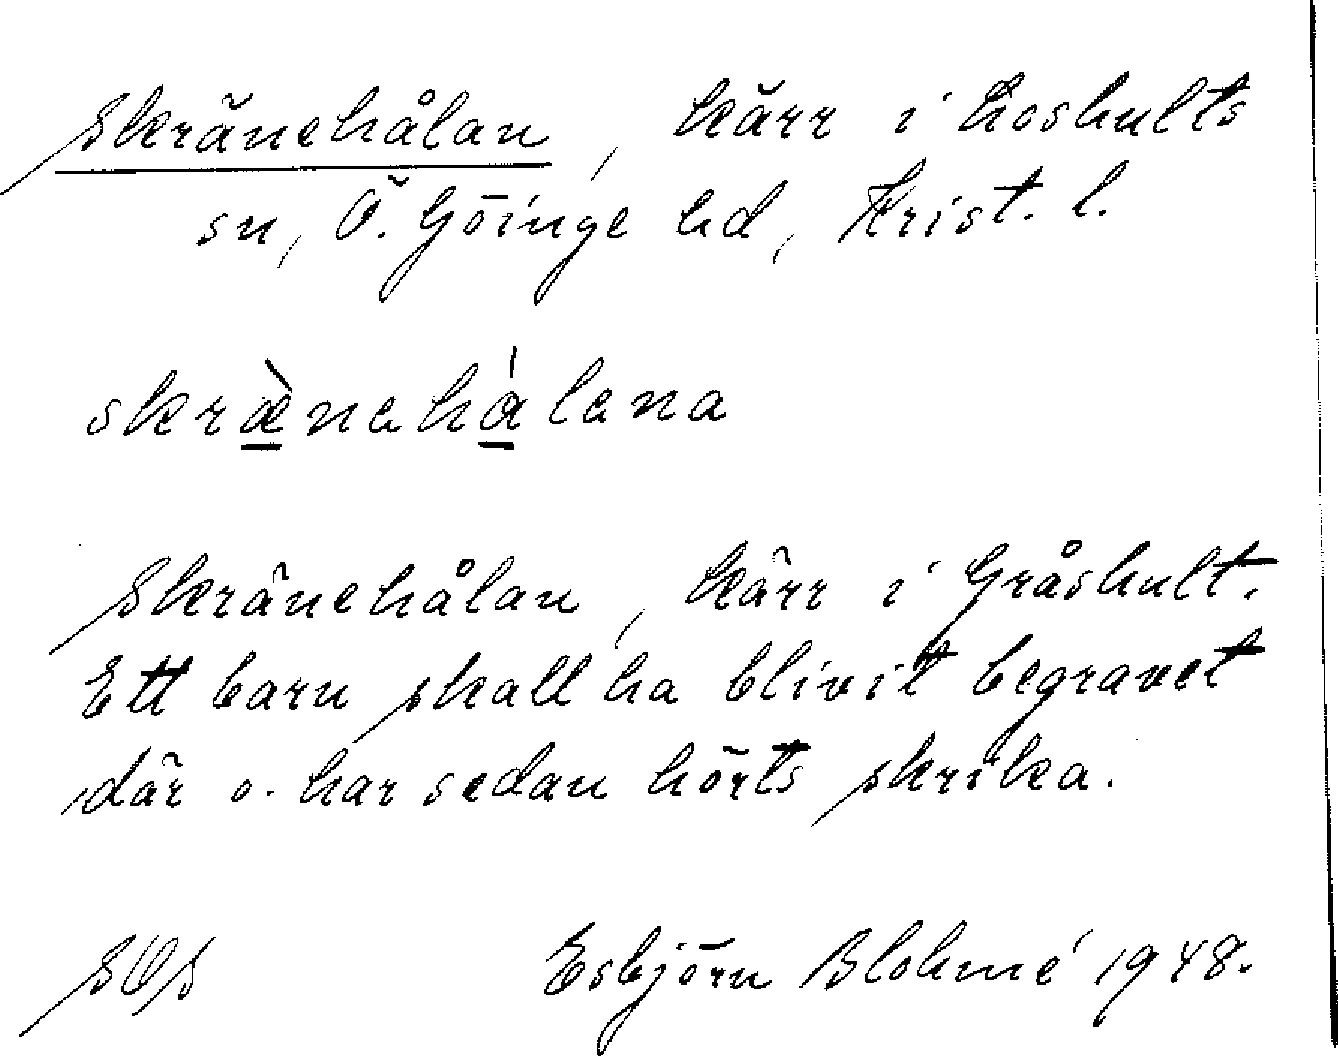 Skränehålan, kärr i Loshults
sn, Ö. Göinge hd, Krist. l.
skræ̀nehálena
Skränehålan, kärr i Gråshult.
Ett barn skall ha blivit begravet
där o. har sedan hörts skrika.
SOS Esbjörn Blohmé 1948.